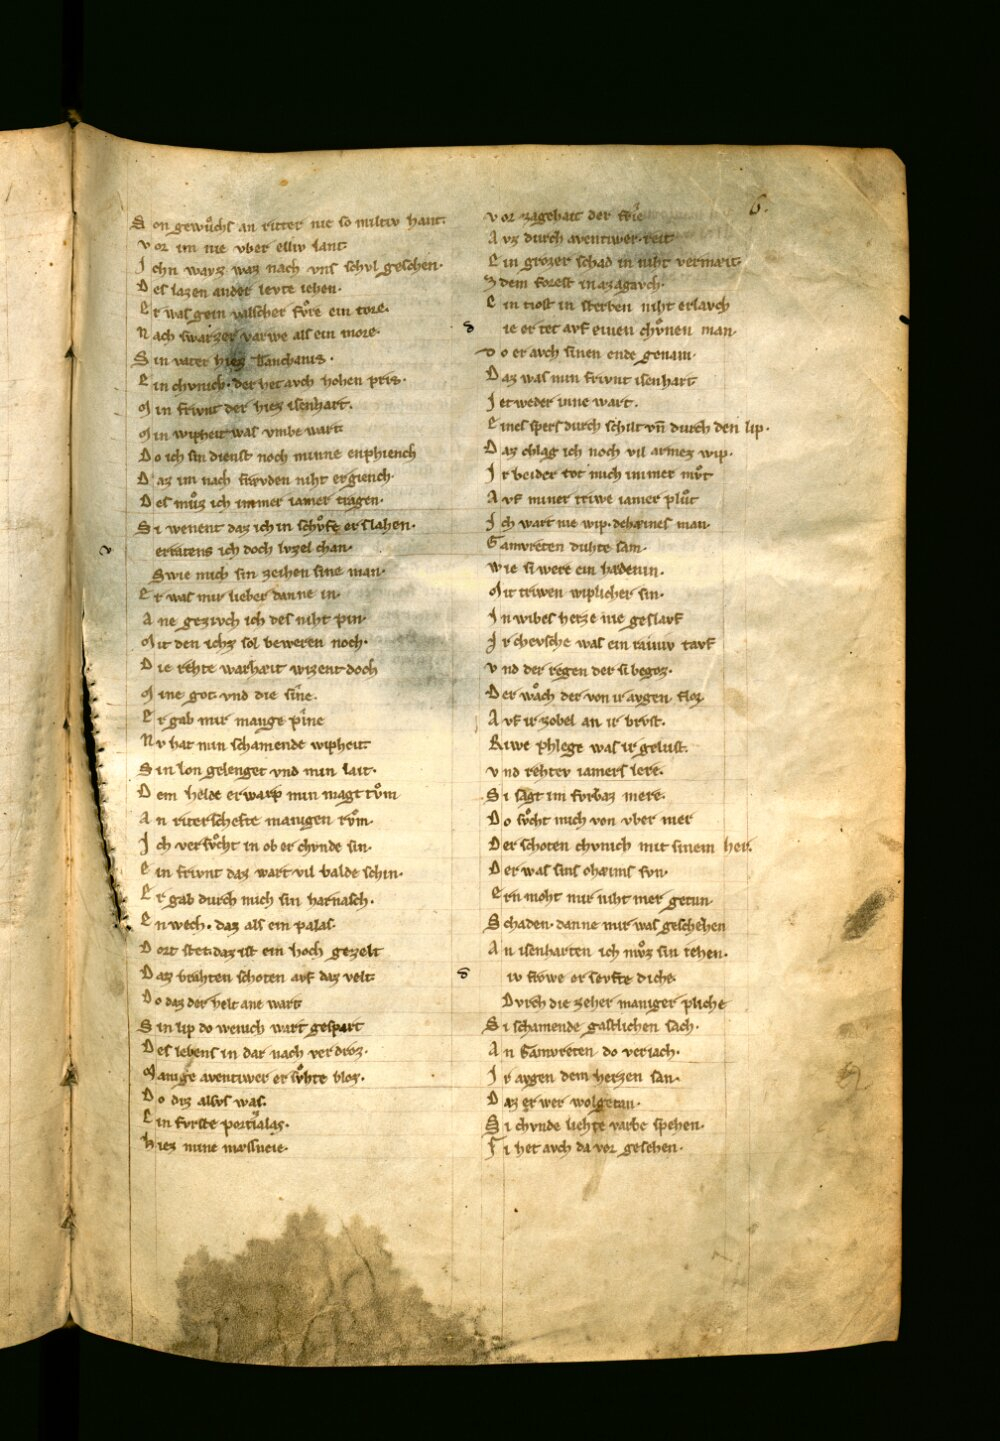 6.
Son gewuͦchs an ritter nie so miltiv hant.
vor im nie vber elliv lant
Ichn wayz waz nach vns schvl geschen.
Des lazen ander levte iehen.
Er was gein valscher fvͦre ein tore.
Nach swarzer varwe als ein more.
Sin vater hiez Tanchanis.
Ein chvnich. der het avch hohen pris.
Min frivnt der hiez isenhart.
Min wipheit was vmbe wart
Do ich sin dienst noch minne enphiench
Daz im nach frevden niht ergiench.
Des mvͦz ich immer iamer tragen.
Si wenent daz ich in schvͦfe erslahen.
erratens ich doch lvzel chan.
Swie mich sin zeihen sine man.
Er was mir lieber danne in.
Ane gezivch ich des niht pin.
Mit den ichz sol beweren noch.
Die rehte warhæit wizent doch
Mine got vnd die sine.
Er gab mir mange pine
Nv hat min schamende wipheit
Sin lon gelenget vnd min lait.
Dem helde erwarp min magtvͦm
An riterschefte manigen rvͦm.
Ich versvͦcht in ob er chvnde sin.
Ein frivnt daz wart vil balde schin.
Er gab durch mich sin harnasch.
Enwech. daz als ein palas.
Dort stet. daz ist ein hoch gezelt
Daz brahten schoten avf daz velt.
Do daz der helt ane wart
Sin lip do wenich wart gespart
Des lebens in dar nach verdroz.
Manige aventiwer er svͦhte bloz.
Do diz alsvs was.
Ein fvrste portialas.
Hiez mine massneie.
vor zagehait der frie
Avz durch aventiwer. reit
Ein grozer schad in niht vermæit.
Zdem forest in azagavch.
Ein tiost in sterben niht erlavch
die er tet avf einen chvͦnen man.
Do er avch sinen ende genam.
Daz was min frivnt isenhart
Ietweder inne wart.
Eines spers durch schilt vn̄ durch den lip.
Daz chlag ich noch vil armez wip.
Ir beider tot mich immer mvͦt
Avf miner triwe iamer plvͦt
Ich wart nie wip. dehæines man.
Gamvreten duhte san.
wie si were ein hædenin.
Mit triwen wiplicher sin.
In wibes herze nie geslavf
Ir chevsche was ein rainiv tavf
vnd der regen der si begoz.
Der wach der von ir avgen floz
Avf ir zobel an ir brvst.
Riwe phlege was ir gelust.
vnd rehtev iamers lere.
Si sagt im fvrbaz mere.
Do svͦcht mich von vber mer
Der schoten chvnich mit sinem her.
Der was sins ohæims svn.
Ern moht mir niht mer getun.
Schaden. danne mir was geschehen
An isenharten ich mvͦz sin iehen.
iv frowe er sevfte diche.
Dvrch die zeher maniger pliche
Si schamende gastlichen sach.
An Gamvreten do veriach.
Ir avgen dem herzen san.
Daz er wer wolgetan.
Si chvnde liehte varbe spehen.
Si het avch da vor gesehen.